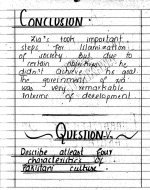 CONCLUSION:
Zia's took important
steps for Islamization
of society But due to
certain
didn't achieve his goal.
the government of
was very remarkable
Interms of development
QUESTION:
Describe atleast four
characteristics of
Pakistani culture.